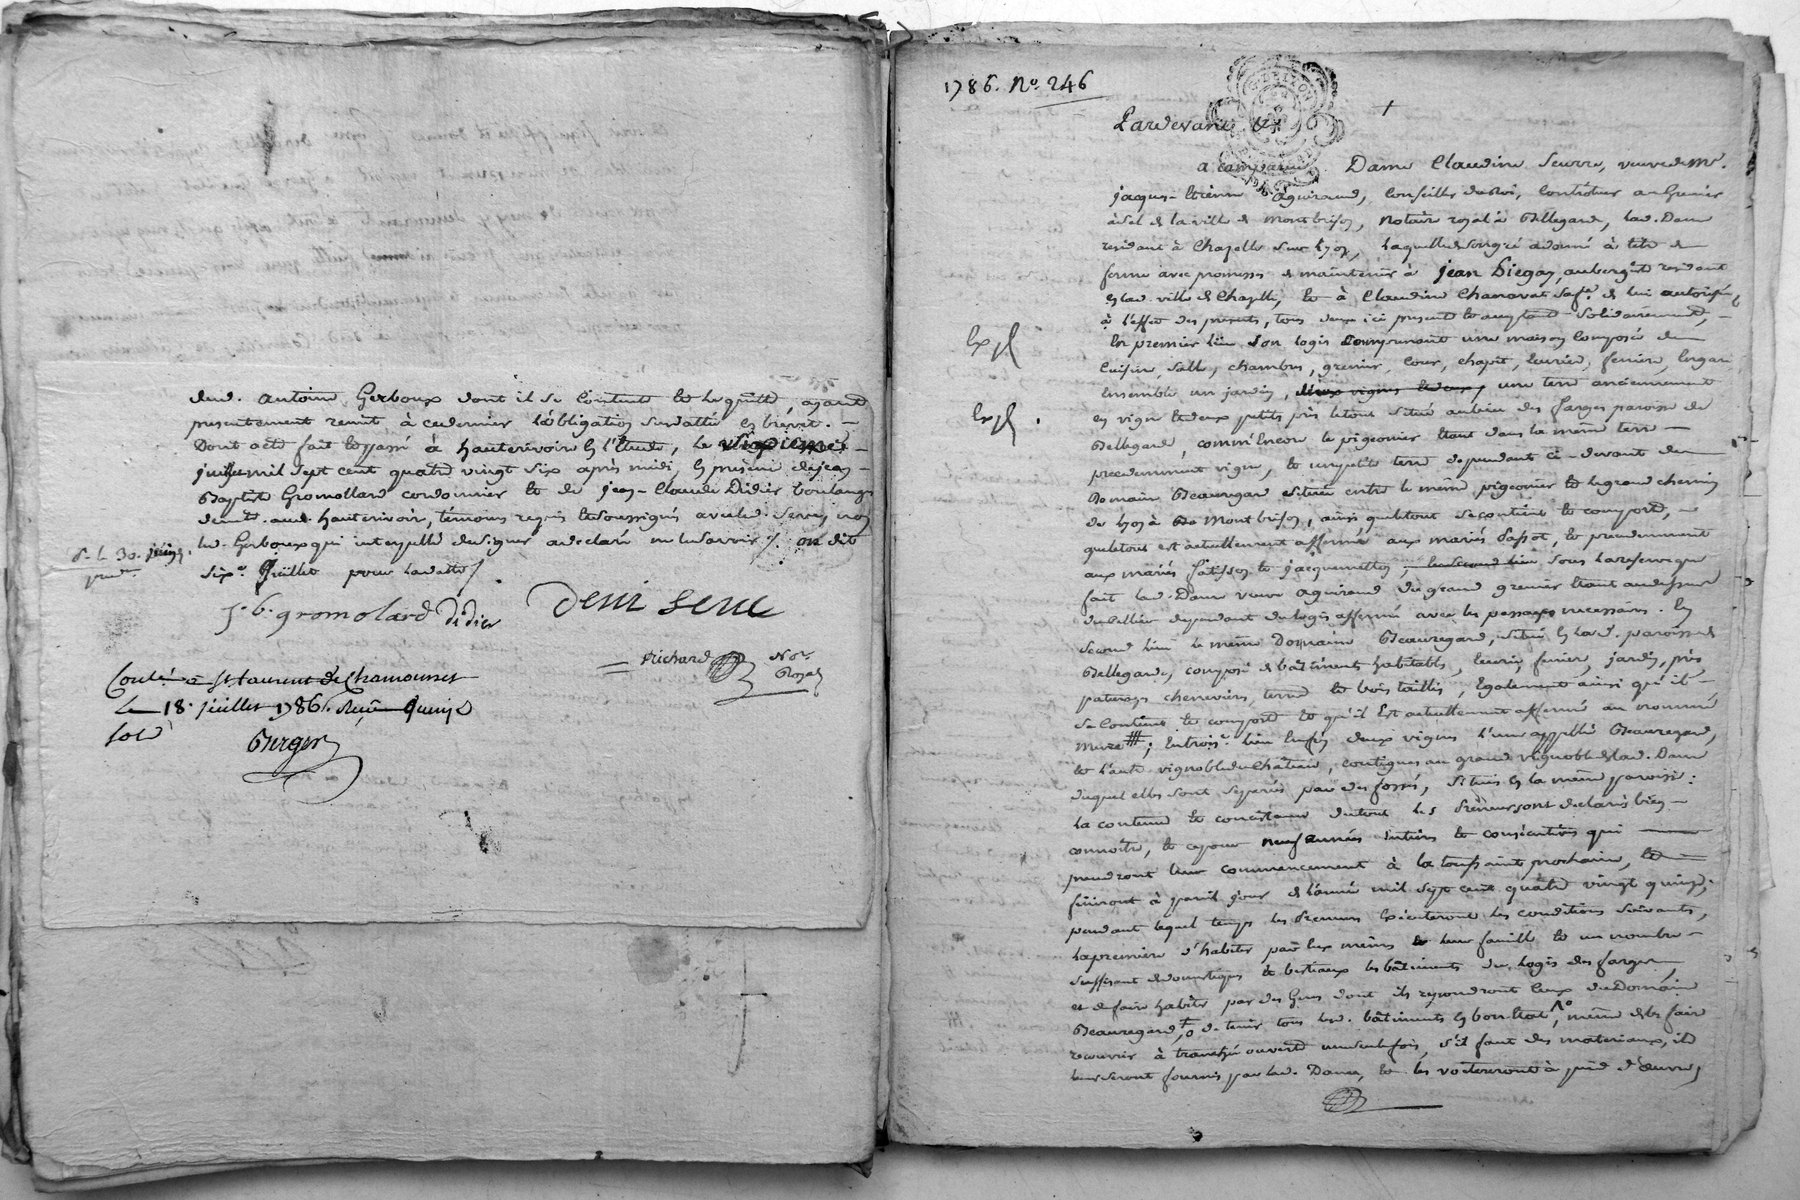 dud. Antoine Gerboux dont il se contente et le quitte, ayant
presentement remit à ce dernier l'obligation susdatte en brevet. —
Dont acte fait et passé à hauterivoire en l'Etude, le
mil sept cent quatre vingt six après midi, en présence de jean-
Baptiste Gromollard cordonnier et de jean-Claude Didier boulanger
demt. aud. hauterivoir, témoins requis et soussignés avec led. Serre, non
led. Gerboux qui interpellé de signer a declaré ne le savoir ./. on dit
six.e juillet pour la datte /
j. b. gromolard Didier Deni Serre
Richard Nore.
Royal
Contlé. à St Laurent de Chamousset
Le 18. juillet 1786. Reçu quinze
sols
Berger
1786. No. 246
Pardevant &c.
a comparu Dame Claudine Seurre, veuve de Mr.
jacques-Etienne Aguiraud, Conseiller du Roi, Contrôleur au Grenier
à sel de la ville de Montbrison, Notaire royal à Bellegarde, lad. Dame
residant à Chazelle sur Lyon, laquelle de son gré a donné à titre de
ferme avec promesse de maintenir à jean aubergiste residant
en lad. ville de Chazelle, et à Claudine Chanavat sa fe. de lui autorisée
à l'effet des présentes, tous deux ici present et acceptant solidairement, —
En premier lieu Son logis comprenant une maison composée de
Cuisine, salle, chambres, grenier, cour, chapit, Ecurier, feniere, hangar
Ensemble un jardin, deux vignes et deux, une terre anciennement
en vigne et deux petits prés le tout situé au lieu des farges paroisse de
Bellegarde, comm'Encore le pigeonier étant dans la même terre —
precedemment vigne, et une petite terre dependant ci-devant du
Domaine Beauregard située entre le même pigeonier et le grand chemin
de Lyon à Montbrison, ainsi que le tout se contient et comporte, —
que le tout est actuellement affermé aux mariés et precedemment
aux mariés et sous la reserve que
fait lad. Dame veuve aguiraud du grand grenier étant au dessus
du cellier dependant du logis affermé avec les passages necessaires. En
second lieu le même Domaine Beauregard, situé en lad. paroisse de
Bellegarde, composé de bâtiments habitables, Ecurie, fenier, jardin, prés
paturages chenevier, terre et bois taillis, également ainsi qu'il —
se contient et comporte et qu'il Est actuellement affermé au nommé
; En trois.e lieu Enfin deux vignes l'une appellée Beauregard,
et l'autre vignoble du château, contigues au grand vignoble de lad. Dame
duquel elles sont séparées par des fossés, situées en la même paroisse:
la contenue et consistance du tout les preneurs ont declaré bien —
connoitre, et ce pour neuf années Entieres et consécutives qui —
prendront leur commencement à la toussaint prochaine, et —
finiront à pareil jour de l'année mil sept cent quatre vingt quinze;
pendant lequel temps les preneurs Executeront les conditions suivantes,
la premiere d'habiter par Eux mêmes et leur famille et un nombre —
suffisant de domestiques et bestiaux les bâtiments du logis des farges
et de faire habiter par des Gens dont ils repondront Ceux du Domaine
Beauregard, de tenir tous lesd. bâtiments en bon Etat, même de les faire
recouvrir à tranchée ouverte une seule fois, s'il faut des materiaux, ils
leur seront fournis par lad. Dame, et les voitureront à pied d'œuvre,